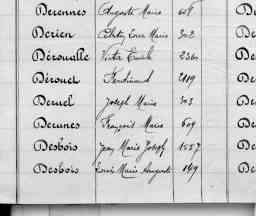 Derennes Auguste Marie 608
Derien Louis Marie 302
Déroualle Victor Emile 2361
Dérouet Ferdinand 2119
Deruel Joseph Marie 303
Derunes François Marie 609
Desbois Jean Marie Joseph 1557
Desbois Louis Marie Auguste 149